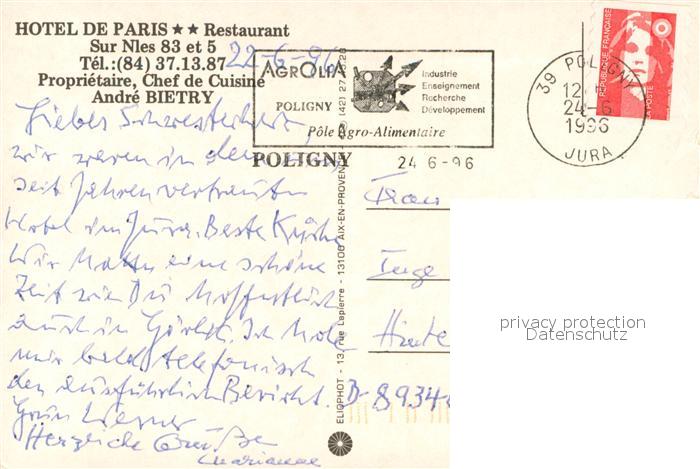 HOTEL DE PARIS ★★ Restaurant
Sur Nles 83 et 5
Tél.:(84) 37.13.87
Propriétaire, Chef de Cuisine
André BIETRY
POLIGNY
22-6-96
Liebes Schwesterherz,
wir waren in dem
seit Jahren vertrauten
Hotel im Jura. Beste Küche
Wir hatten eine schöne
Zeit wie Du hoffentlich
auch in Görlitz. Ich hole
mir bald telefonisch
den ausführlichen Bericht.
Dein Werner
Herzliche Grüße
Marianne
AGROLIA
POLIGNY
Industrie
Enseignement
Recherche
Développement
Pôle Agro-Alimentaire
24 6-96
39 POLIGNY
24-6
1996
JURA
REPUBLIQUE FRANÇAISE
LA POSTE
ELIOPHOT - 13, rue Lapierre - 13100 AIX-EN-PROVENCE
Frau
Inge
D-8934
privacy protection
Datenschutz